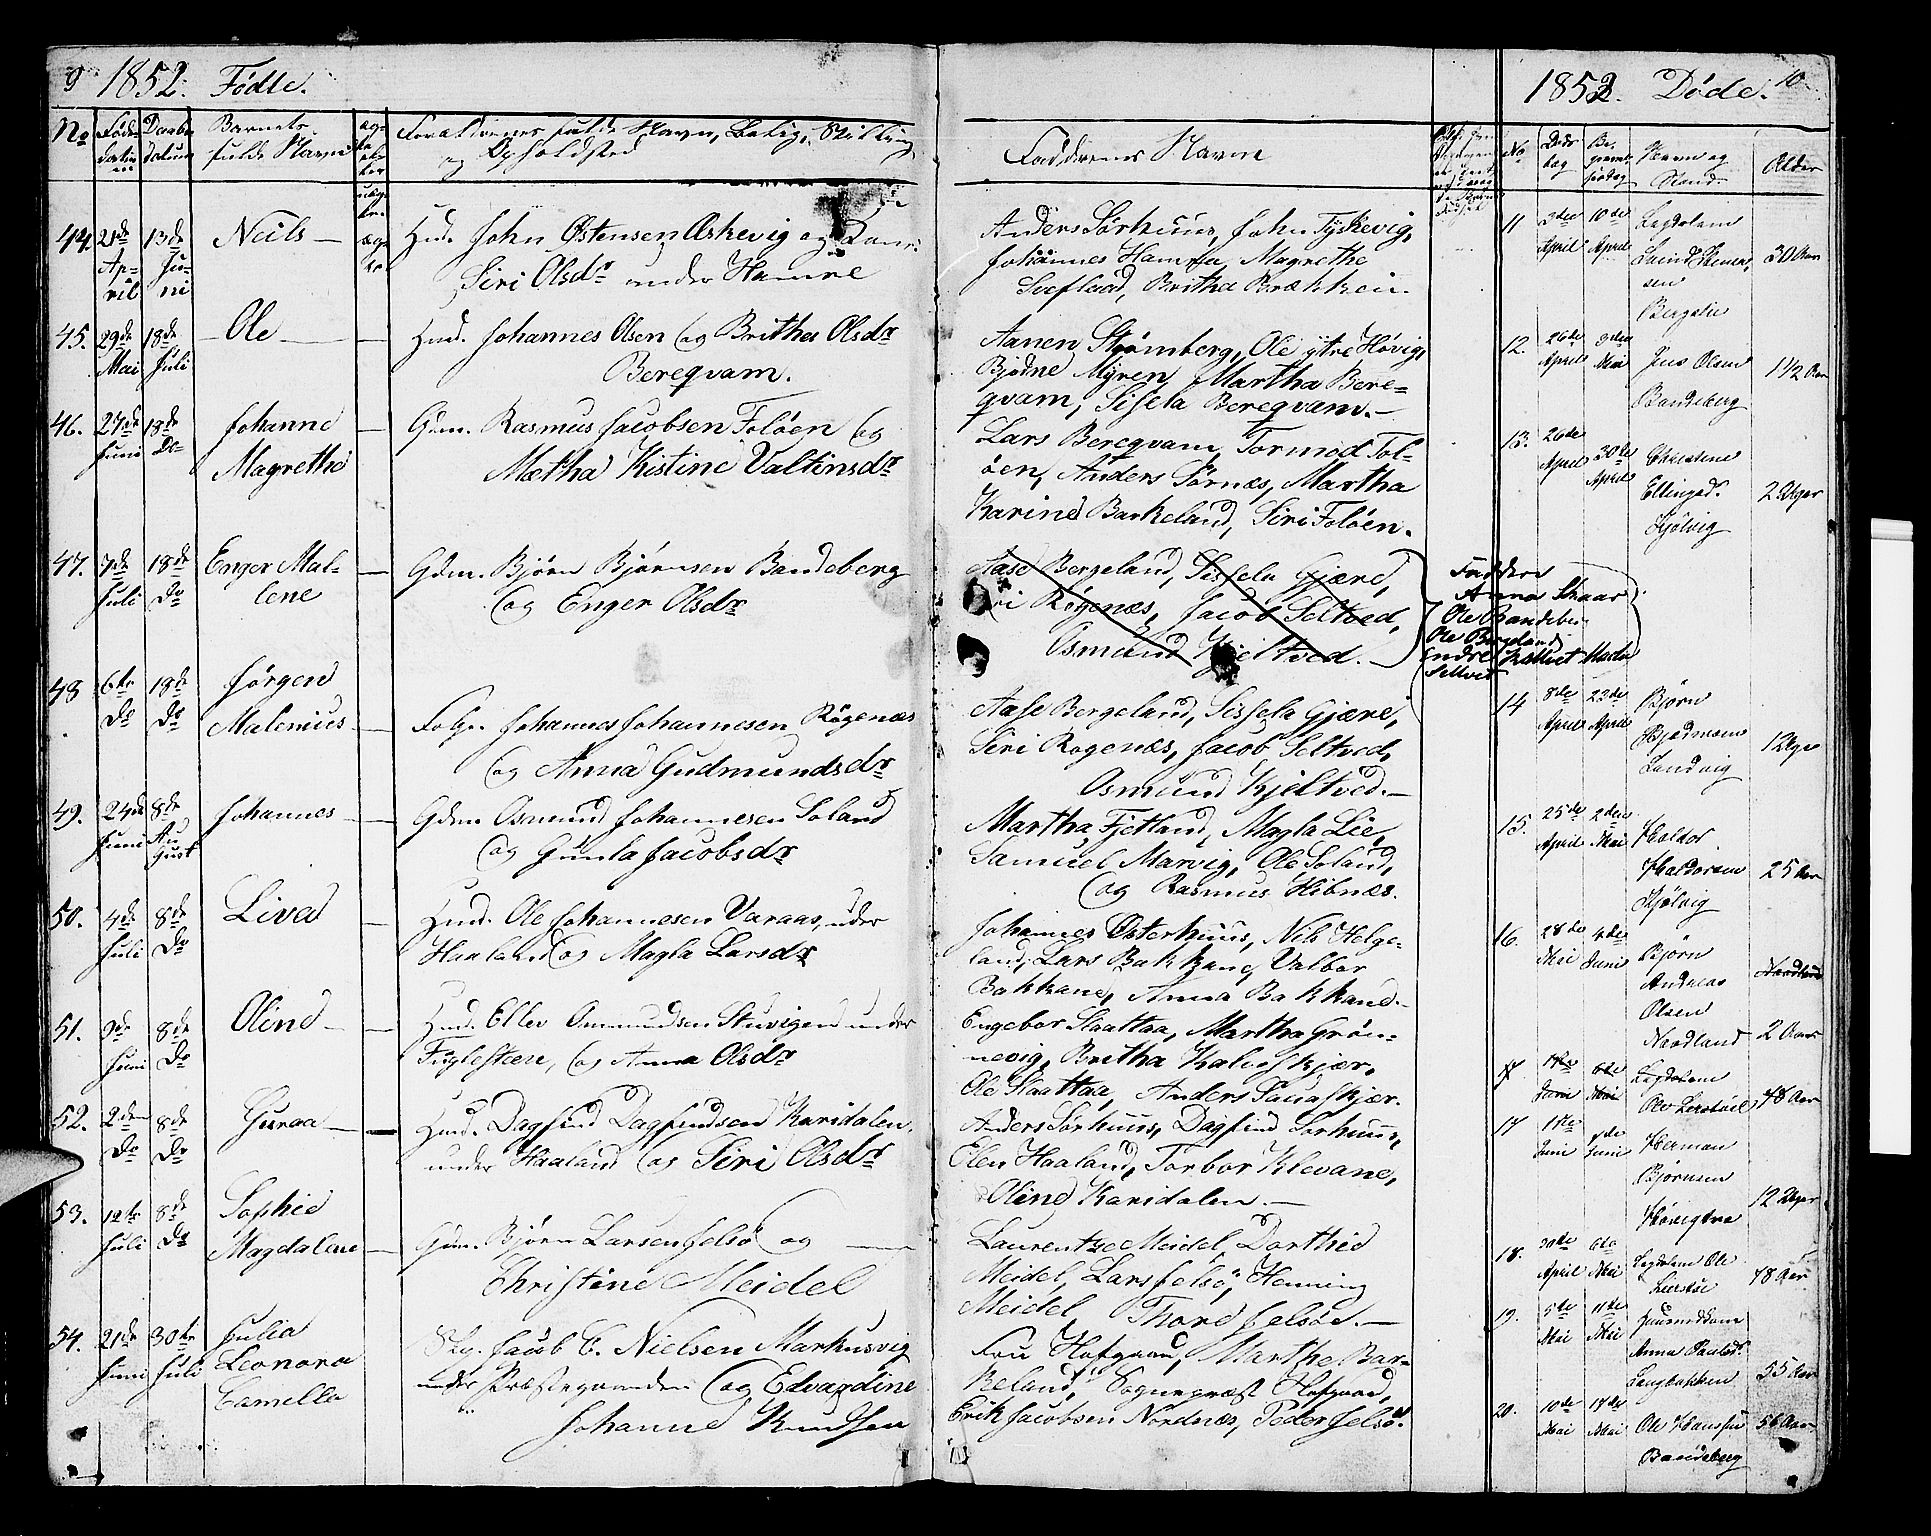 9 1852. Födte.
No Föds- datum Daabs datum Barnets fulde Navn Forældrenes fulde Navn, Bolig, Stilling
og Opholdsted
44. 21de April 13de Juni Nils — Hmd. John Østensen Askevig og Kone
Siri Olsdr under Hamre
45. 29de Mai 18de Juli Ole Hmd. Johannes Olsen og Britha Olsdr
Bereqvam.
46. 27de Juni 18de Do Johanne Magrethe Gdm. Rasmus Jacobsen Foløen og
Mætha Kistine Valtinsdr
47. 7de Juli 18de Do Enger Malene Gdm. Bjørn Bjørnsen Bandeberg
og Enger Olsdr
48 6te Do 18de Do Jørgen Malenius Johannes Johannesen Røgenæs
og Anna Gudmundsdr
49. 24de Juni 8de August Johannes Gdm Osmund Johannesen Soland
og Gunla Jacobsdr
50. 4de Juli 8de Do Liva Hmd. Ole Johannesen Varaas, under
Haaland og Magla Larsdr
51. 9de Juni 8de Do Oline Hmd. Ellev Ommundsen Stuvigen under
Fuglesteen, og Anna Olsdr
52. 2den Do 8de Do Guraa Hmd. Dagfind Dagfindsen Karidalen,
under Haaland og Siri Olsdr
53. 12te Juli 8de Do Sophie Magdalene Gdm. Bjørn Larsen Jelsø og
Christine Meidel
54. 21de Juni 30te Juli Julia Leonora Camella Jacob C. Nielsen Markusvig
under Præstegaarden og Edvardine
Johanne Knudsen
Faddernes Navne
Anders Sørhuus, John Tyskevig,
Johannes Hamre, Magrethe
Britha Brækken.
Aanen Strømberg, Ole ytre Høvig,
Bjødne Myren, Martha Bere-
qvam, Sisela Bereqvam.—
Lars Bereqvam, Tormod Fol-
øen, Anders Sørnæs, Martha
Karine Barkeland, Siri Foløen.
Aase Bergeland, Sissela Gjære,
Siri Røgenæs, Jacob Seltved,
Osmund Kjeltved.
Faddere
Anna Skaar
Ole Bandeberg
Ole Bergeland
Endre
Seltved
Aase Bergeland, Sissela Gjære,
Siri Rogenæs, Jacob Seltved,
Osmund Kjeltved.—
Martha Fjetland, Magla Lie,
Samuel Marvig, Ole Soland,
og Rasmus Hibnæs.
Johannes Østerhuus, Nils Helge-
land, Lars Bakkane, Valbor
Bakkane, Anna Bakkane.—
Engebor Slaattaa, Martha Grøn-
nevig, Britha
Ole Slaattaa, Anders
Anders Sørhuus, Dagfind Sørhuus,
Elen Haaland, Torbor Klevane,
Oline Karidalen.—
Laurentze Meidel, Dorthie
Meidel, Lars Jelsø, Henning
Meidel Thore Jelsøe.—
Fru Hofgaard, Marthe Bar-
keland, Sognepræst Hofgaard,
Erik Jacobsen Nordnæs, Peder Jelsø.
1852. Døde. 10
No Døds dag Be- gravelsesdag Navn og Stand. Alder
11 3die April 10de April Legdelem
30 Aar
12. 26de April 9de Mai Jens Olsen
Bandeberg 1 1/2 Aar
13. 26de April 30te April Christine
Ellingsd. 2 Uger
Hjølvig
14 8de April 23de April Bjørn
Bjødnesen 1 Uge
Landvig
15. 25de April 2den Mai Haldor
Haldorsen 25 Aar
Hjølvig
16. 28de Mai 4de Juni Bjørn
Andreas
Olsen
Naadland 2 Aar
17 Juni 6te Mai Legdelem
Ole 48 Aar
17 1ste Juni 7de Juni Herman
Bjørnsen
12 Uger
18. 30te April 6te Mai Legdelem Ole
78 Aar
19. 5te Mai 11te Mai
Anna Paulsdr
Langbakken 55 Aar
20. 10de Mai 17de Mai Ole Hansen 56 Aar
Bandeberg